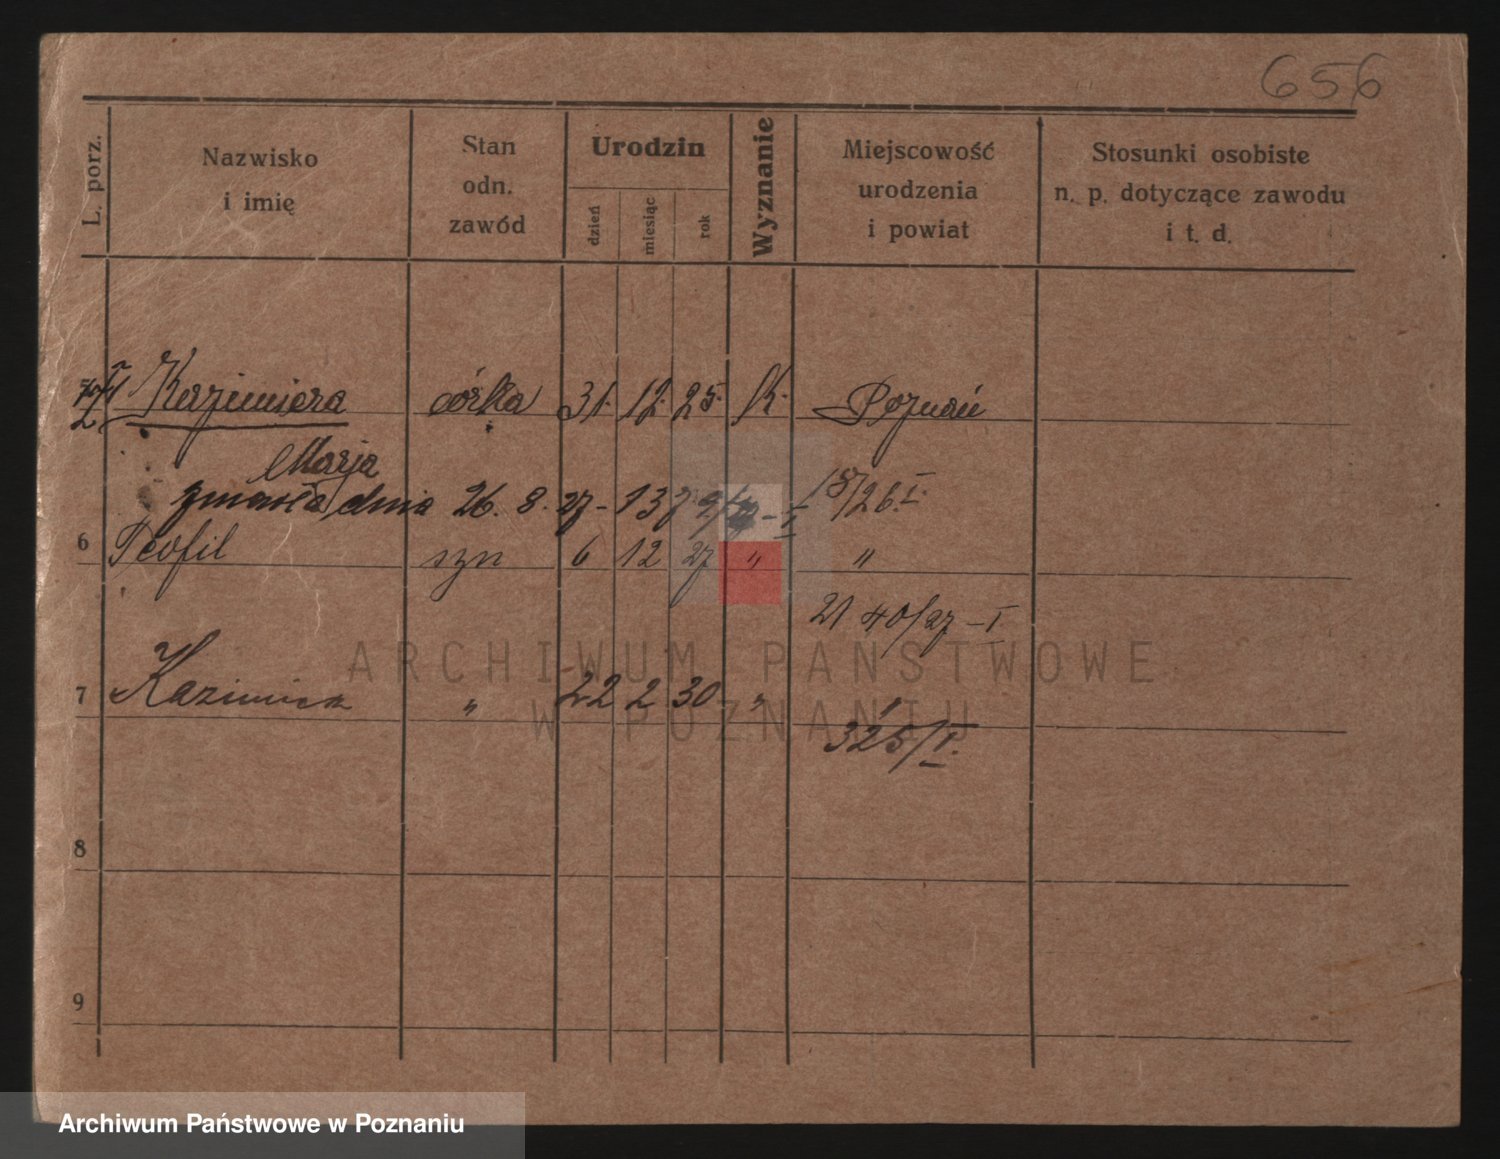 656
L. porz.
Nazwisko
i imię
Stan
odn.
zawód
Urodzin
dzień
miesiąc
rok
Wyznanie
Miejscowość
urodzenia
i powiat
Stosunki osobiste
n. p. dotyczące zawodu
i t. d.
Kazimiera córka 31. 12. 25. K. Poznań
Marja
zmarła dnia 26. 8. 27 - 137 18/26 I.
6 Teofil syn 6 12 27 " "
21 40/27 - I
7 Kazimierz " 22 2 30 "
325/I.
8
9
ARCHIWUM PAŃSTWOWE
W POZNANIU
Archiwum Państwowe w Poznaniu